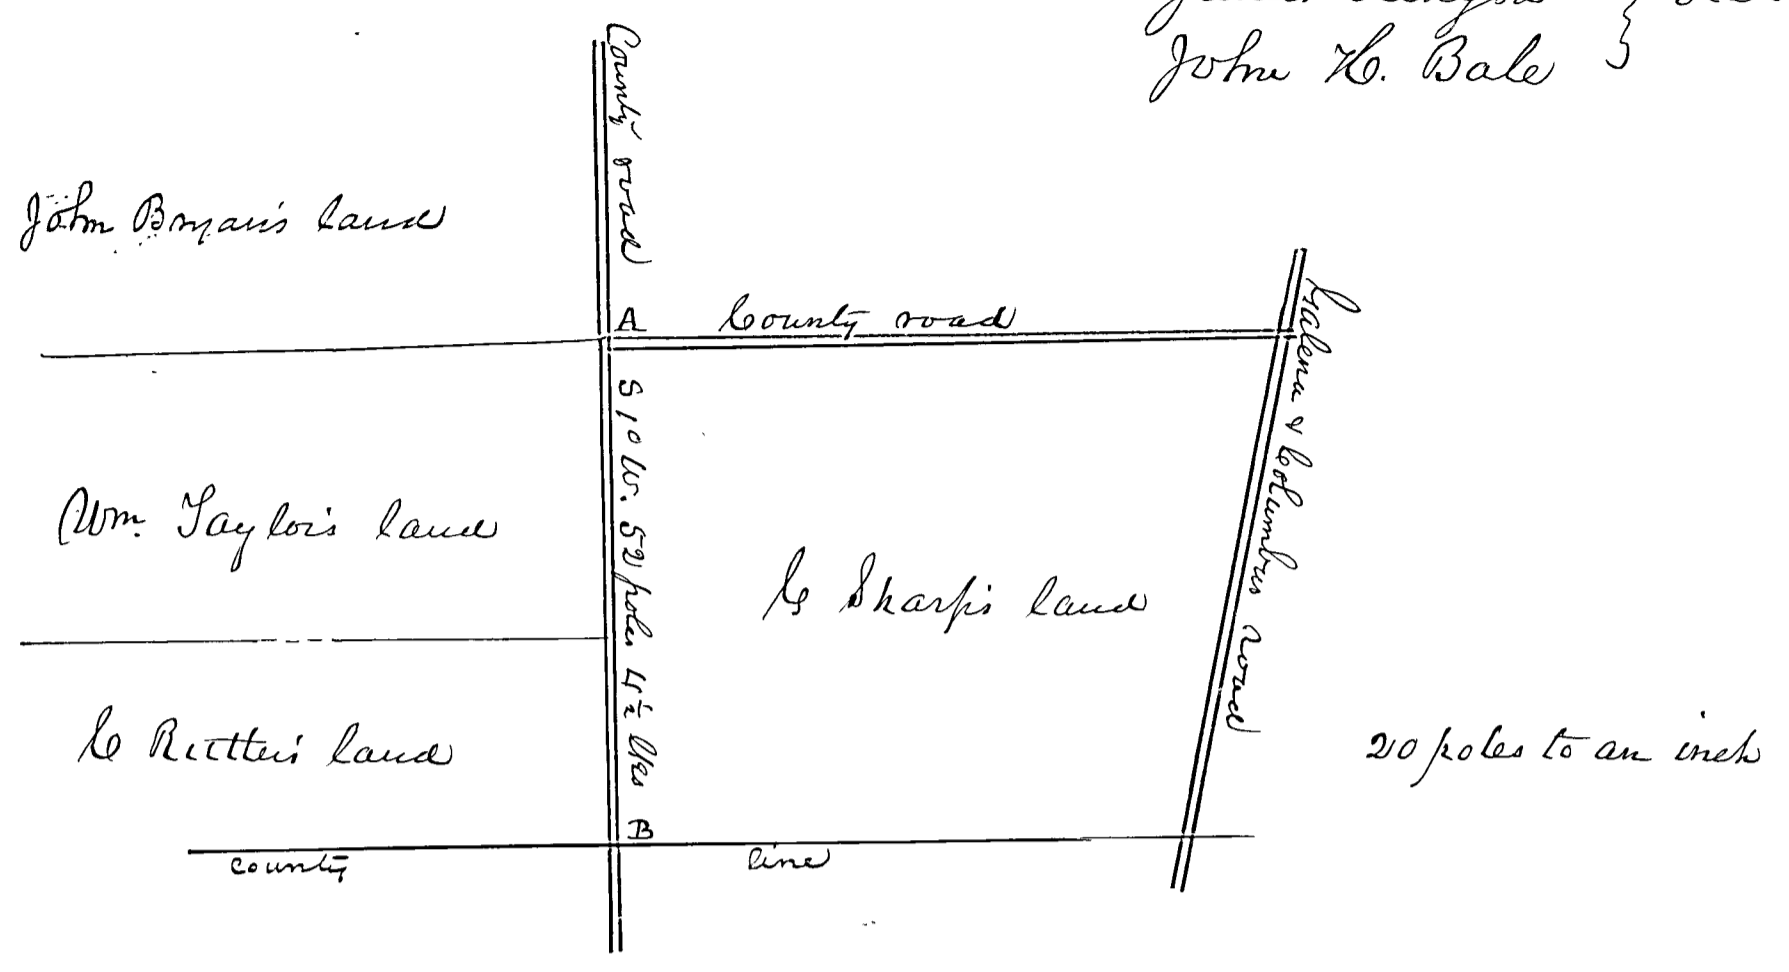 John H. Bale
County road
John Bryan's land
A
County road
Galena & Columbus road
S 1 0 W. 52 poles 4½ lks
Wm. Taylor's land
C Sharp's land
C Rutter's land
20 poles to an inch
B
county line